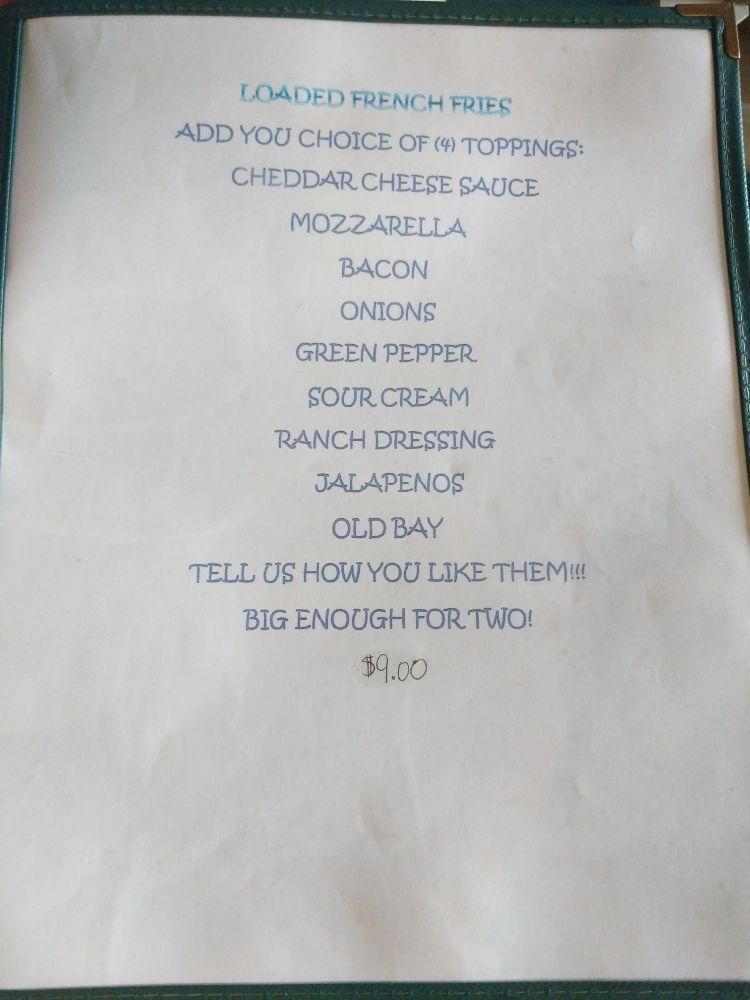 LOADED FRENCH FRIES
ADD YOU CHOICE OF (4) TOPPINGS:
CHEDDAR CHEESE SAUCE
MOZZARELLA
BACON
ONIONS
GREEN PEPPER
SOUR CREAM
RANCH DRESSING
JALAPENOS
OLD BAY
TELL US HOW YOU LIKE THEM!!!
BIG ENOUGH FOR TWO!
$9.00